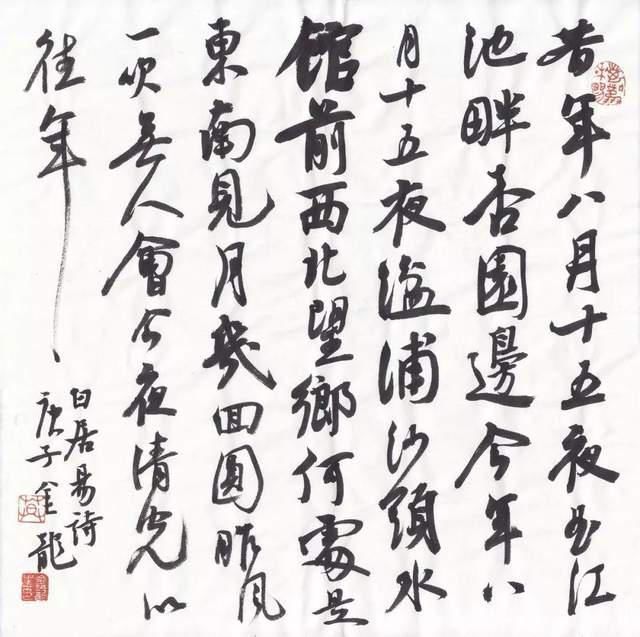 昔年八月十五夜曲江
池畔杏園邊今年八
月十五夜湓浦沙頭水
館前西北望鄉何處是
東南見月幾回圓昨風
一吹無人會今夜清光似
往年
白居易詩
庚子金龍